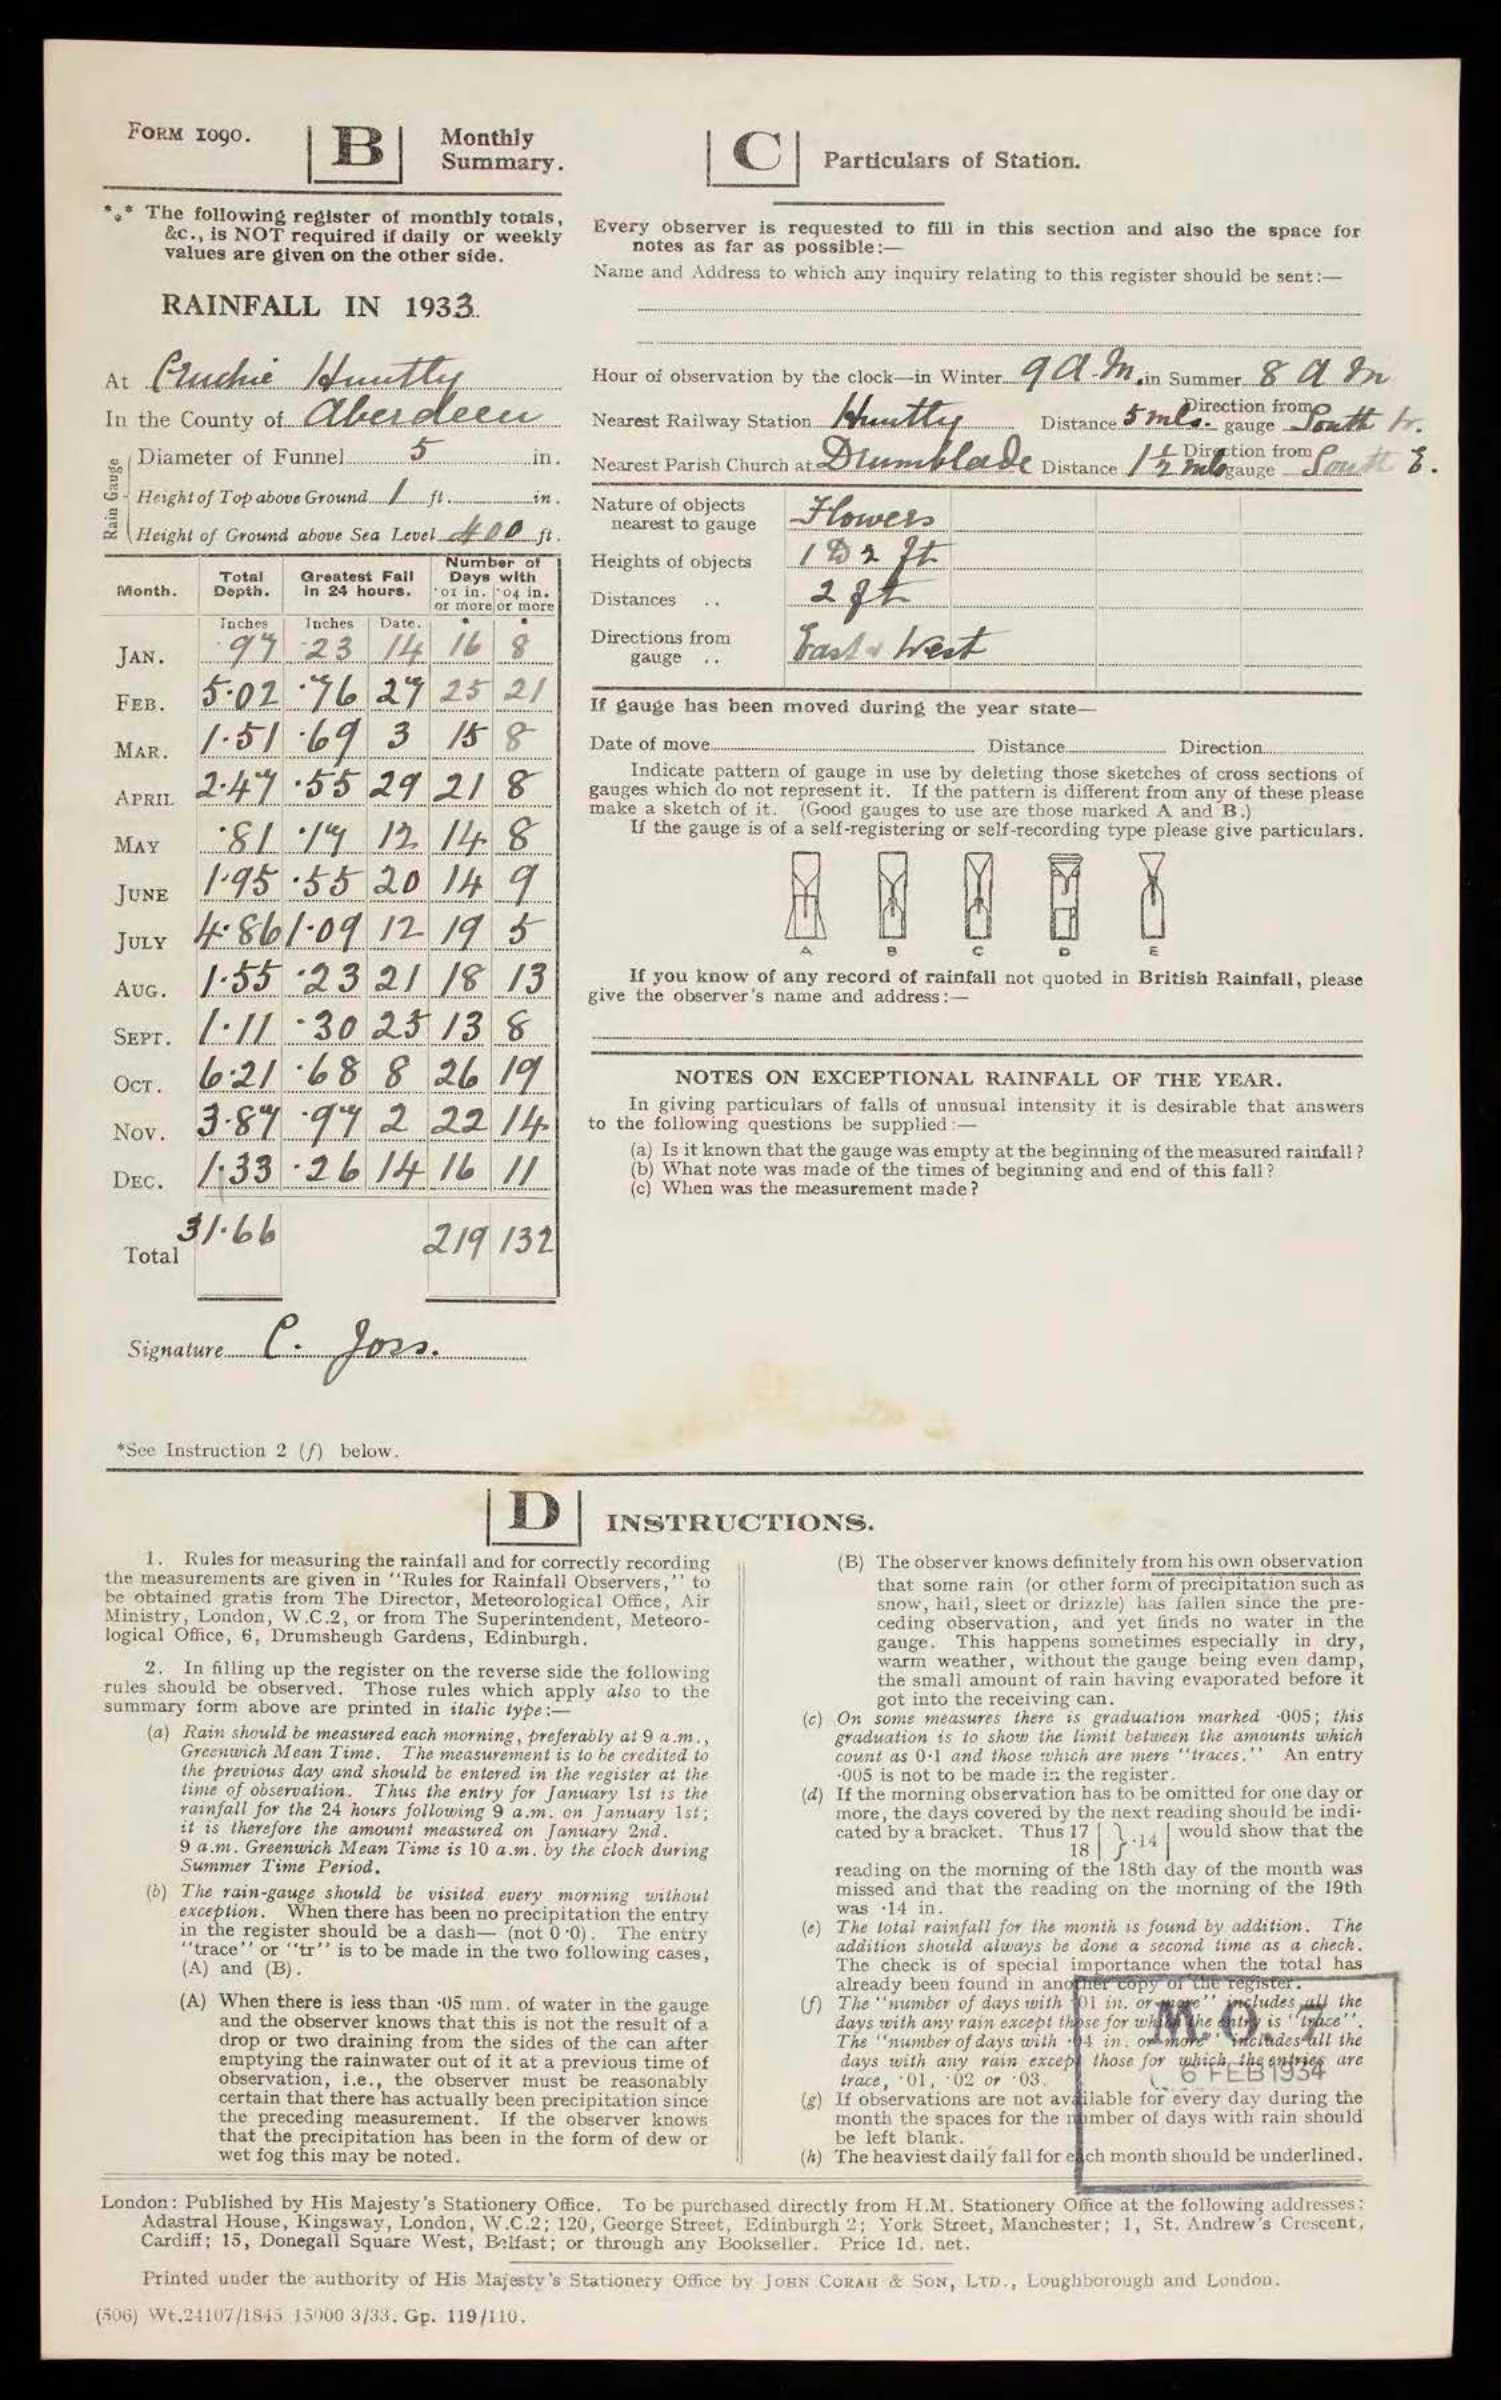 FORM 1090.
B
Monthly
Summary.
*⁎* The following register of monthly totals,
&c., is NOT required if daily or weekly
values are given on the other side.
RAINFALL IN 1933.
At Huntly
In the County of Aberdeen
Rain Gauge
Diameter of Funnel 5 in.
Height of Top above Ground 1 ft. in.
Height of Ground above Sea Level 400 ft.
Month. Total Depth. Greatest Fall in 24 hours. Number of Days with
·01 in. or more ·04 in. or more
Inches Inches Date. * *
JAN. ·97 ·23 14 16 8
FEB. 5·02 ·76 27 25 21
MAR. 1·51 ·69 3 15 8
APRIL 2·47 ·55 29 21 8
MAY ·81 ·17 12 14 8
JUNE 1·95 ·55 20 14 9
JULY 4·86 1·09 12 19 5
AUG. 1·55 ·23 21 18 13
SEPT. 1·11 ·30 25 13 8
OCT. 6·21 ·68 8 26 19
NOV. 3·87 ·97 2 22 14
DEC. 1·33 ·26 14 16 11
Total 31·66 219 132
Signature C. Joss.
*See Instruction 2 (f) below.
C
Particulars of Station.
Every observer is requested to fill in this section and also the space for
notes as far as possible:—
Name and Address to which any inquiry relating to this register should be sent:—
Hour of observation by the clock—in Winter 9 A.M. in Summer 8 A M
Nearest Railway Station Huntly Distance 5 mls. Direction from gauge South W.
Nearest Parish Church at Drumblade Distance 1½ mls Direction from gauge South E.
Nature of objects
nearest to gauge Flowers
Heights of objects 1 to 2 ft
Distances .. 2 ft
Directions from
gauge .. East & West
If gauge has been moved during the year state—
Date of move Distance Direction
Indicate pattern of gauge in use by deleting those sketches of cross sections of
gauges which do not represent it. If the pattern is different from any of these please
make a sketch of it. (Good gauges to use are those marked A and B.)
If the gauge is of a self-registering or self-recording type please give particulars.
A B C D E
If you know of any record of rainfall not quoted in British Rainfall, please
give the observer's name and address:—
NOTES ON EXCEPTIONAL RAINFALL OF THE YEAR.
In giving particulars of falls of unusual intensity it is desirable that answers
to the following questions be supplied:—
(a) Is it known that the gauge was empty at the beginning of the measured rainfall?
(b) What note was made of the times of beginning and end of this fall?
(c) When was the measurement made?
D
INSTRUCTIONS.
1. Rules for measuring the rainfall and for correctly recording
the measurements are given in "Rules for Rainfall Observers," to
be obtained gratis from The Director, Meteorological Office, Air
Ministry, London, W.C.2, or from The Superintendent, Meteoro-
logical Office, 6, Drumsheugh Gardens, Edinburgh.
2. In filling up the register on the reverse side the following
rules should be observed. Those rules which apply also to the
summary form above are printed in italic type:—
(a) Rain should be measured each morning, preferably at 9 a.m.,
Greenwich Mean Time. The measurement is to be credited to
the previous day and should be entered in the register at the
time of observation. Thus the entry for January 1st is the
rainfall for the 24 hours following 9 a.m. on January 1st;
it is therefore the amount measured on January 2nd.
9 a.m. Greenwich Mean Time is 10 a.m. by the clock during
Summer Time Period.
(b) The rain-gauge should be visited every morning without
exception. When there has been no precipitation the entry
in the register should be a dash— (not 0·0). The entry
"trace" or "tr" is to be made in the two following cases,
(A) and (B).
(A) When there is less than ·05 mm. of water in the gauge
and the observer knows that this is not the result of a
drop or two draining from the sides of the can after
emptying the rainwater out of it at a previous time of
observation, i.e., the observer must be reasonably
certain that there has actually been precipitation since
the preceding measurement. If the observer knows
that the precipitation has been in the form of dew or
wet fog this may be noted.
(B) The observer knows definitely from his own observation
that some rain (or other form of precipitation such as
snow, hail, sleet or drizzle) has fallen since the pre-
ceding observation, and yet finds no water in the
gauge. This happens sometimes especially in dry,
warm weather, without the gauge being even damp,
the small amount of rain having evaporated before it
got into the receiving can.
(c) On some measures there is graduation marked ·005; this
graduation is to show the limit between the amounts which
count as 0·1 and those which are mere "traces." An entry
·005 is not to be made in the register.
(d) If the morning observation has to be omitted for one day or
more, the days covered by the next reading should be indi-
cated by a bracket. Thus 17 | } ·14 | would show that the
18 |
reading on the morning of the 18th day of the month was
missed and that the reading on the morning of the 19th
was ·14 in.
(e) The total rainfall for the month is found by addition. The
addition should always be done a second time as a check.
The check is of special importance when the total has
already been found in another copy of the register.
(f) The "number of days with ·01 in. or more" includes all the
days with any rain except those for which the entry is "trace".
The "number of days with ·04 in. or more" includes all the
days with any rain except those for which the entries are
trace, ·01, ·02 or ·03.
(g) If observations are not available for every day during the
month the spaces for the number of days with rain should
be left blank.
(h) The heaviest daily fall for each month should be underlined.
M.O. 7
6 FEB 1934
London: Published by His Majesty's Stationery Office. To be purchased directly from H.M. Stationery Office at the following addresses:
Adastral House, Kingsway, London, W.C.2; 120, George Street, Edinburgh 2; York Street, Manchester; 1, St. Andrew's Crescent,
Cardiff; 15, Donegall Square West, Belfast; or through any Bookseller. Price 1d. net.
Printed under the authority of His Majesty's Stationery Office by JOHN CORAH & SON, LTD., Loughborough and London.
(506) Wt.24107/1845 15000 3/33. Gp. 119/110.